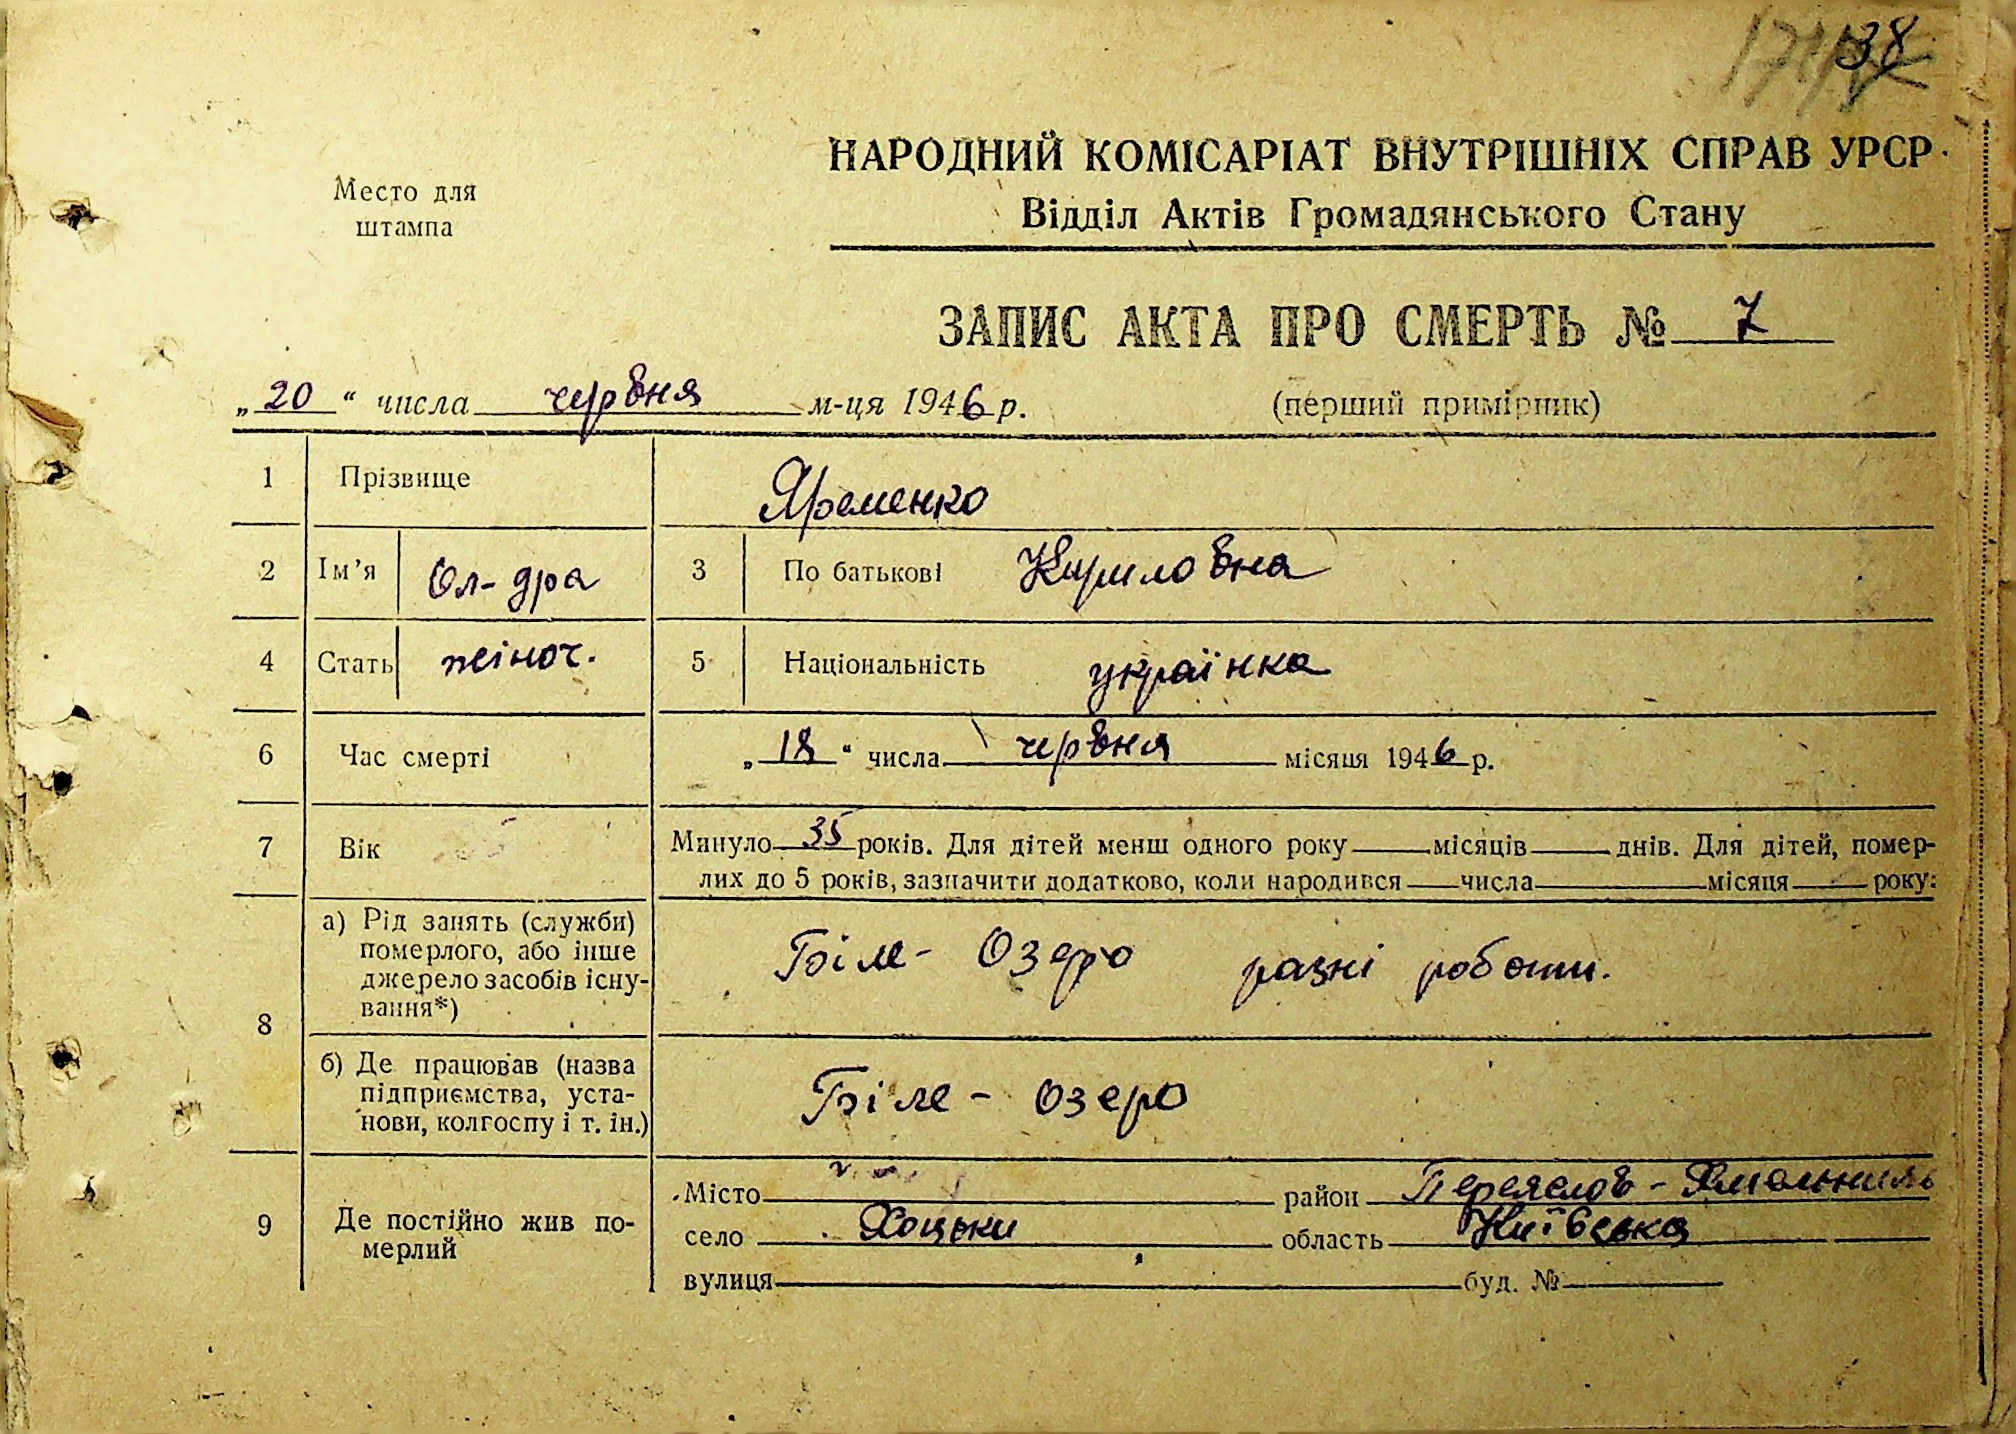 38
НАРОДНИЙ КОМІСАРІАТ ВНУТРІШНІХ СПРАВ УРСР
Место для
штампа
Відділ Актів Громадянського Стану
ЗАПИС АКТА ПРО СМЕРТЬ № 7
„20“ числа червня м-ця 1946 р.
(перший примірник)
1 Прізвище Яременко
2 Ім’я Ол-дра 3 По батькові Кириловна
4 Стать жіноч. 5 Національність українка
6 Час смерті „18“ числа червня місяця 1946 р.
7 Вік Минуло 35 років. Для дітей менш одного року місяців днів. Для дітей, помер-
лих до 5 років, зазначити додатково, коли народився числа місяця року:
8 а) Рід занять (служби)
померлого, або інше
джерело засобів існу-
вання*)
Біле-Озеро разні роботи.
б) Де працював (назва
підприємства, уста-
нови, колгоспу і т. ін.)
Біле-озеро
9 Де постійно жив по-
мерлий
Місто район Переяслов-
село Хоцьки область Київська
вулиця буд. №